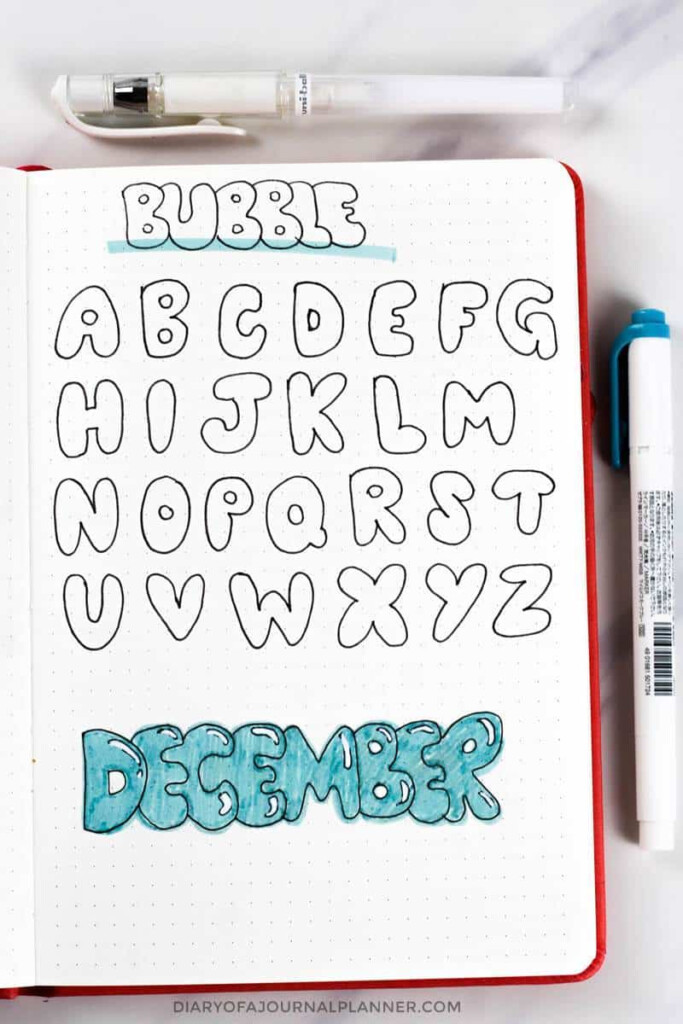 BUBBLE
A B C D E F G
H I J K L M
N O P Q R S T
U V W X Y Z
DECEMBER
DIARYOFAJOURNALPLANNER.COM